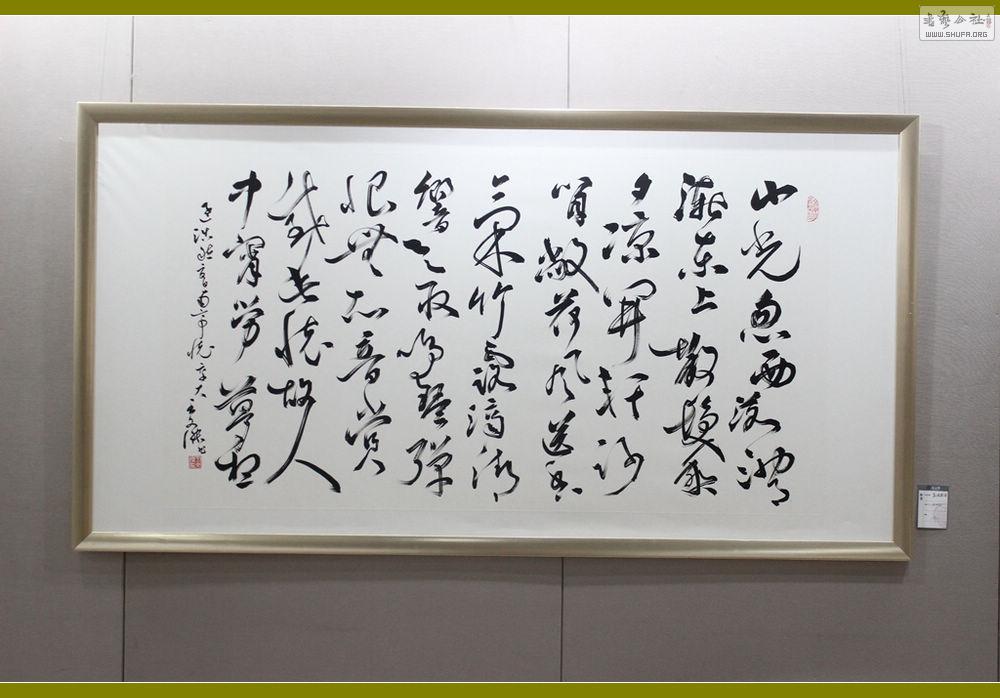 山光忽西落池月
漸東上散髮乘
夕涼開軒臥
閒敞荷風送香
氣竹露滴清
響欲取鳴琴彈
恨無知音賞
感此懷故人
中宵勞夢想
孟浩然夏日南亭懷辛大
書藝公社
WWW.SHUFA.ORG